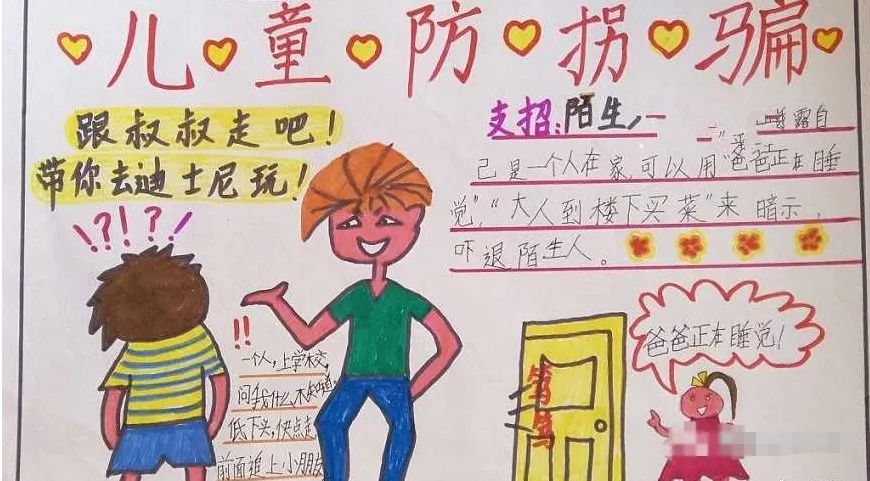 儿童防拐骗
跟叔叔走吧!
带你去迪士尼玩!
?!??
支招:陌生
露自
己是一个人在家,可以用"爸爸正在睡
觉","大人到楼下买菜"来暗示,
吓退陌生人。
!!
一个人,上学校,
问我什么,不知道,
低下头,快点走,
前面追上小朋友
笃笃
爸爸正在睡觉!